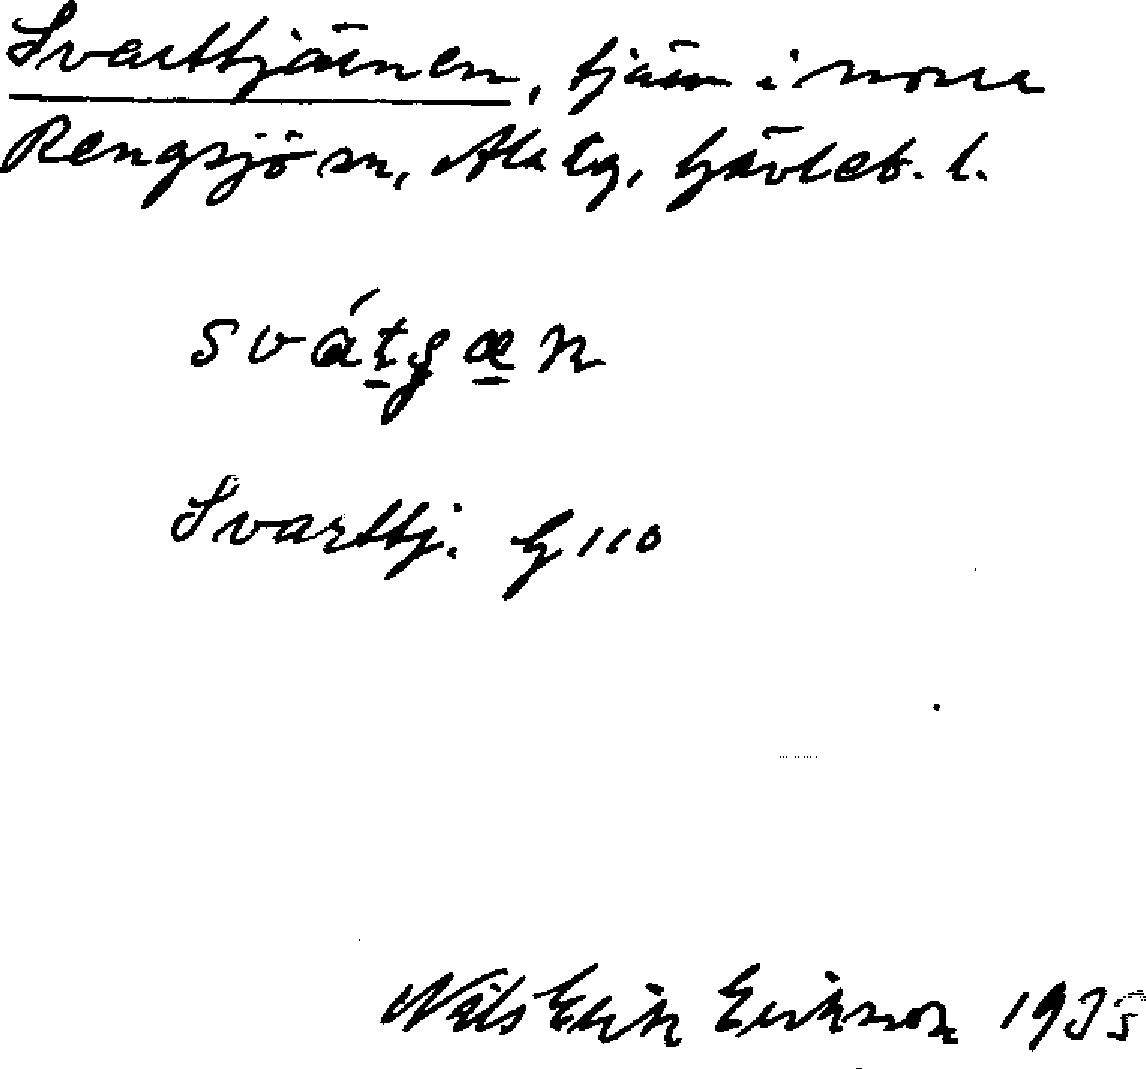 Svarttjärnen, tjärn i norra
Rengsjö sn, Ala tg, Gävleb. l.
svátgæn
Svarttj. G 110
Nils Erik Erikson 1935